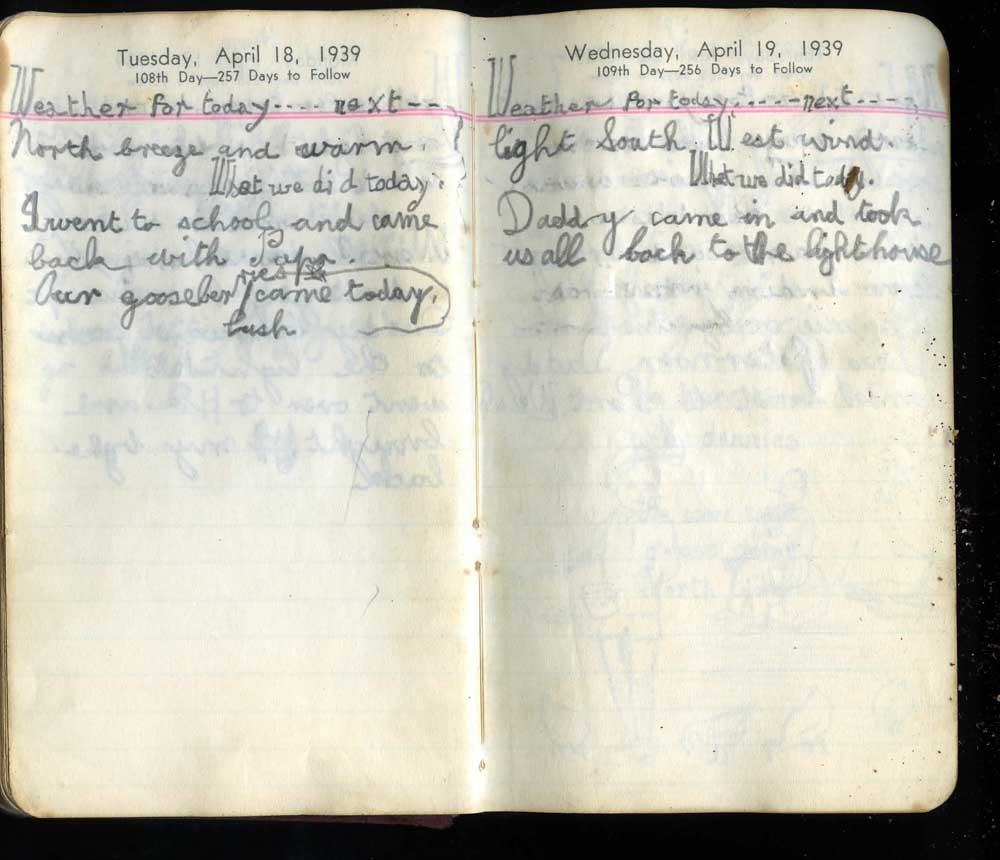 Tuesday, April 18, 1939
108th Day—257 Days to Follow
Weather for today.... next--
North breeze and warm.
What we did today.
I went to school and came
back with
Our gooseberries came today.
bush
Wednesday, April 19, 1939
109th Day—256 Days to Follow
Weather for today.....-next---
light South West wind.
What we did today.
Daddy came in and took
us all back to the lighthouse